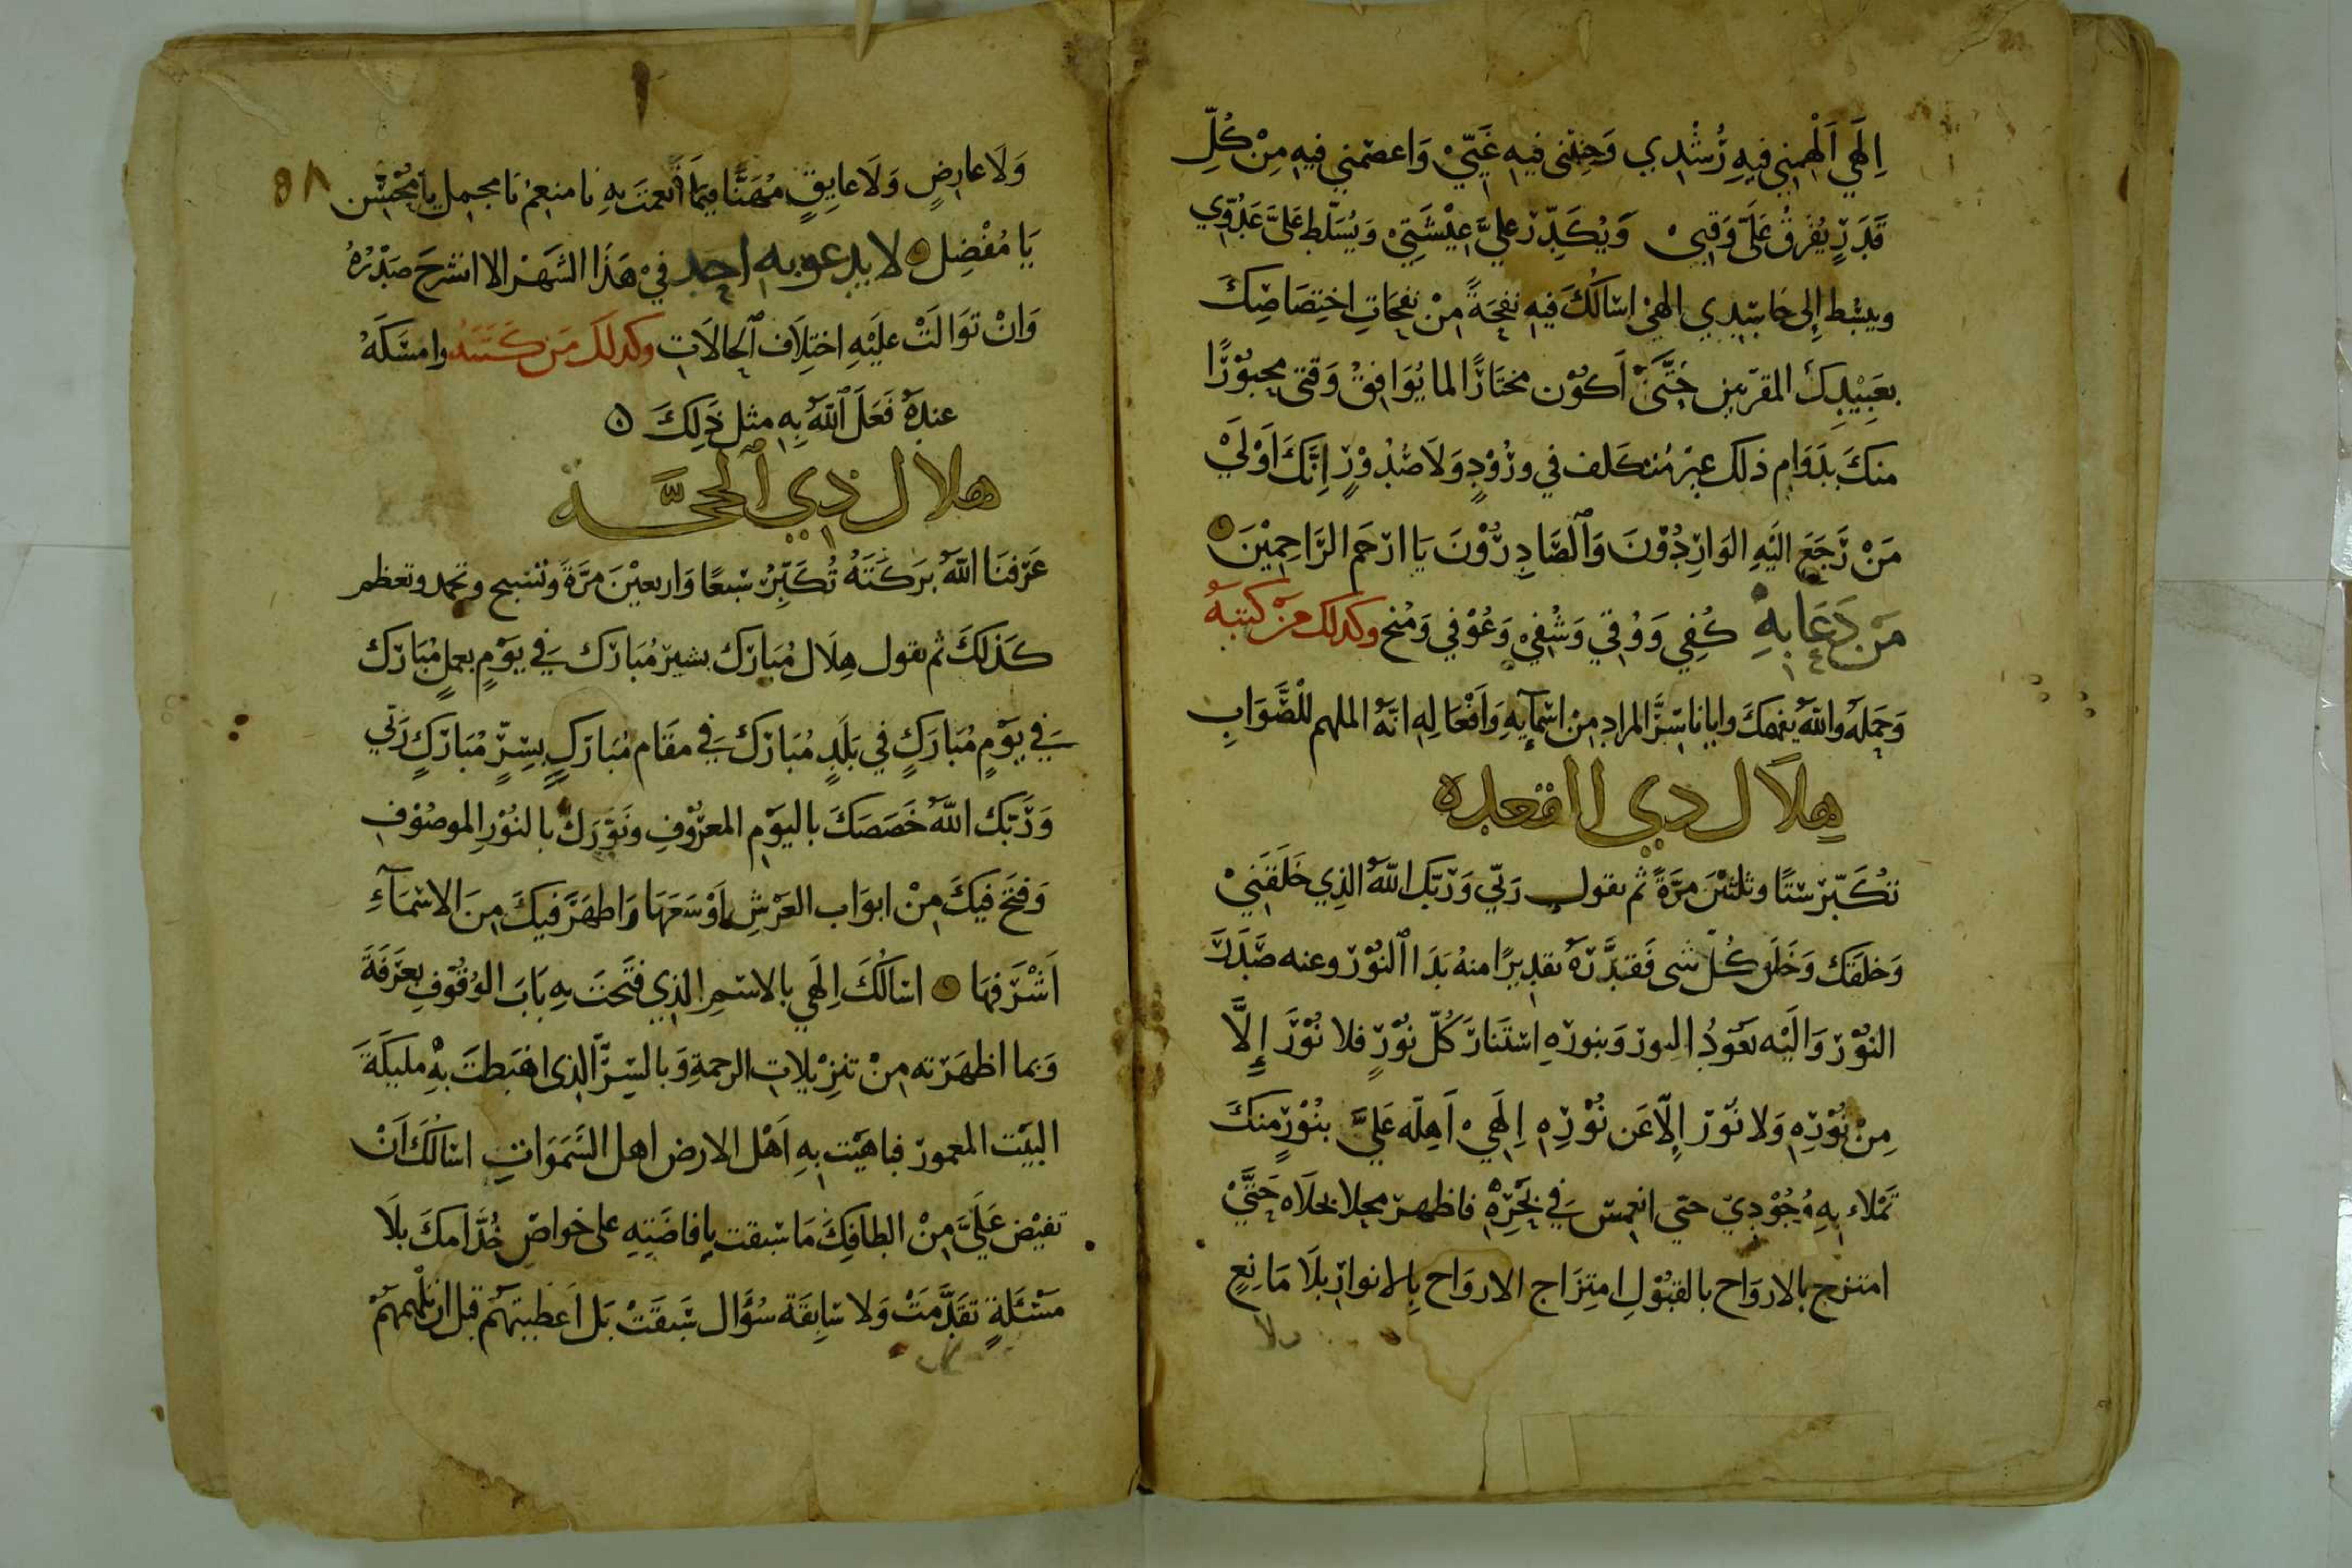 اِلَهي اَلْهِمْنِي فِيهِ رُشْدِي وَجَنِّبْنِي فيهِ غَيِّيْ وَاعصمني فيهِ مِنْ كُلِّ
قَدَرٍ يُفَرِقُ عَلَيَّ وَقتِيْ وَيُكَدِّر عليَّ عِيْشَتِيْ وَيُسَلّط عَلَيَّ عَدُوّي
ويبسُط إِلى حَاسِدِي الهيْ اسْالُكَ فيهِ نفحَةً مِنْ نفحَاتِ اختِصَاصِكَ
بعَبِيْدِكَ المقرّبين حَتَّىْ اَكوُن مختَارًا لما يُوَافِقُ وَقتي محبوُرًا
منكَ بدَوَامِ ذلك غيْرَ مُتكَلف في وُرُوْدٍ وَلَا صُدُوْرٍ اِنَّكَ اَوْلَيْ
مَنْ رَجَعَ اليَهِ الوَارِدُوْنَ وَالصَّادِرُوْنَ يَا ارْحَمَ الرَّاحِمِيْنَ
مَنْ دَعَا بِهِ كُفِي وَوُقِي وَشُفِيْ وَعُوْفي وَمُنح وكذلك مَنْ كتبهُ
وَحَمله واللهُ يفهمكَ وايانا سِرَّ المراد مِنْ اسْمآيهِ وَاَفْعَالِهِ انّهُ الملهم لِلْصَّوَابِ
هِلَال ذي القعده
تكَبّر ستًا وثلثين مرّةً ثم تقول رَبّي وَرَبّك اللهُ الذِي خَلَقَنِيْ
وَخلقَك وَخَلَق كُلّ شى فَقدَّرَهُ تقدِيرًا منهُ بَدَا النُوْر وعنه صَدَرَ
النوُر وَالَيْه يَعوُدُ النور وَبنورهِ استَنارَ كُلّ نوُرٍ فلا نوُرَ إِلَّا
مِنْ نوُرِهِ وَلا نوُر إِلّا عَن نوُرِهِ اِلَهِيْ اَهِلّه عَلَيَّ بنُوْرٍ منكَ
تَمْلاء بِهِ وُجُوْدِيْ حتى انغمسَ فِي بَحْرِهِ فاظهر مجلا بحلَاه حَتَّيْ
امتزج بالاروَاح بالقبُوْلِ امتِزَاج الارْوَاح بِالانوار بلَا مَانِعٍ
ولا
٥٨
وَلَا عارِضٍ وَلَا عايِقٍ مُهَنَّا فيمَا اَنْعمتَ بهِ يَا منعِمُ يَا مجمل يا مُحْسِن
يَا مُفْضِل لا يدعو به احد فيْ هَذَا الشهَرْ الا انشرحَ صَدْرُهُ
وَانْ توَالَتْ عليْهِ اختِلَاف الحالَات وكذلكَ مَن كَتَبَهُ وامسَكَهُ
عندِهُ فَعَلَ اللهُ بِهِ مثل ذَلِكَ
هلال ذي الحجَّــة
عَرّفنَا اللهُ بَرَكتَهُ تُكَبِّرُ سَبعًا وَاربعيْنَ مرَّةً وتسبح وتحمد وتعظم
كَذلكَ ثم تقول هِلَال مُبَارَك بشير مُبَارَك فِي يَوْمٍ بعملٍ مُبَارَك
فِي يَوْمٍ مُبَارَكٍ في بَلَدٍ مُبَارَك فِي مقَام مُبَارَكٍ بسِرٍّ مُبَارَكٍ رَبّي
وَرَبّك اللهُ خَصَصَكَ باليوَْمِ المعرُوْفِ وَنوَّرَكَ بالنُوْرِ الموصُوْف
وَفتحَ فيكَ مِنْ ابوَاب العَرْشِ اَوْسَعَهَا وَاَظهَرَ فيكَ مِنَ الاسْمَآءِ
اَشْرَفهَا اسْالُكَ اِلَهي بالاسْمِ الذِي فتَحتَ بِهِ بَابَ الوُقوُفِ بعَرَفَةَ
وَبما اظهَرْته مِنْ تنزِيْلات الرحمةِ وَبالسِرّ الذى اهبَطتَ بِهِ مليكَةَ
البيَتْ المعمور فباهَيْت بِهِ اَهْل الارض اهل السَّمَوَاتِ اسْالُكَ اَنْ
تفيْضَ عَلَيَّ مِنْ الطافِكَ مَا سَبقت بِافاضَتِهِ على خواصّ خُدَّامكَ بلَا
مَسْئَلةٍ تقَدَّمَتْ وَلا سَابِقَة سُؤَال سَبَقَتْ بَل اَعْطَيتَهُم قبل ان تُلْهِمَهُمْ